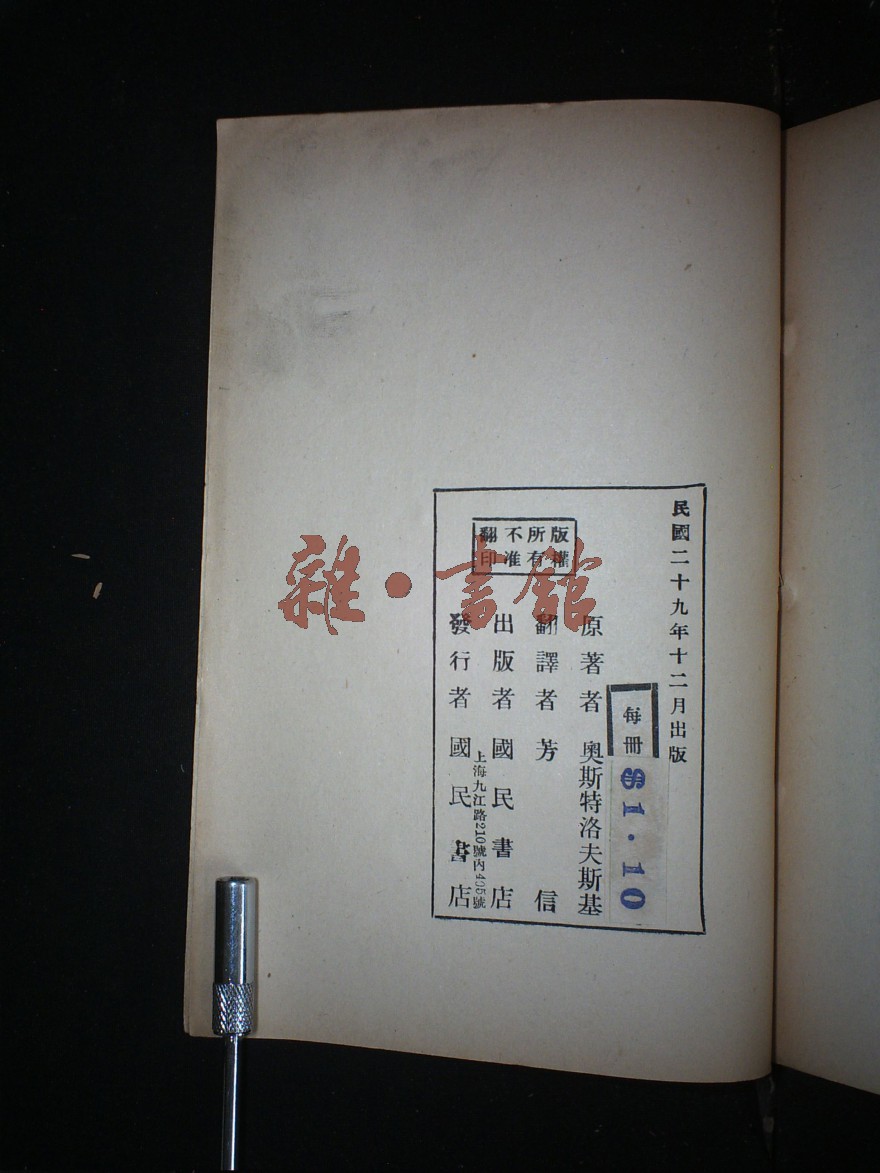 民國二十九年十二月出版
每冊
$1.10
原著者 奧斯特洛夫斯基
翻譯者 芳信
出版者 國民書店
上海九江路210號內405號
發行者 國民書店
版權所有
不准翻印
雜·書館